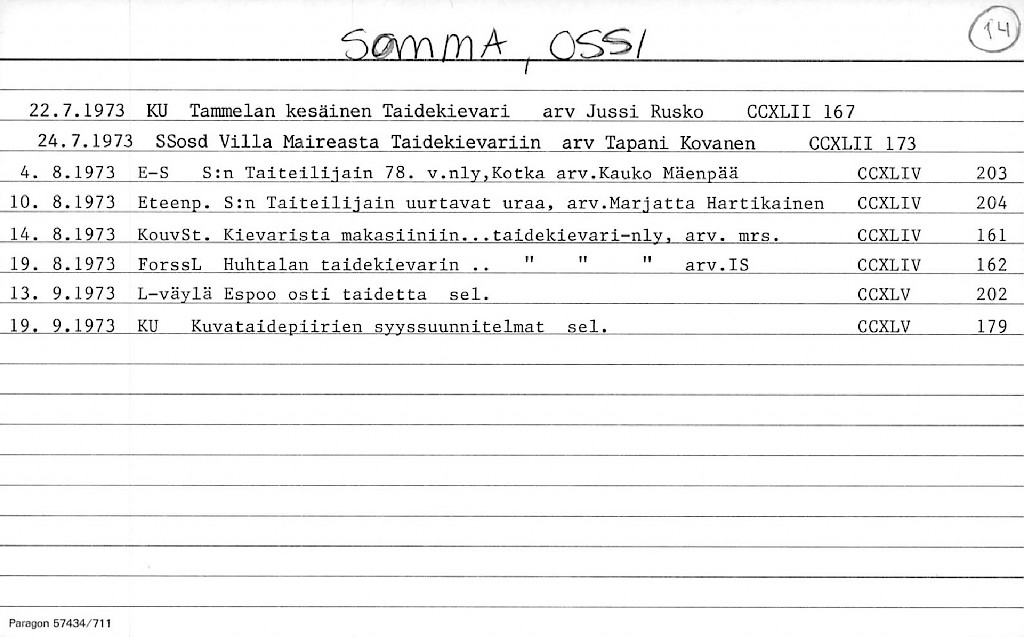 SOMMA, OSSI
14
22.7.1973 KU Tammelan kesäinen Taidekievari arv Jussi Rusko CCXLII 167
24.7.1973 SSosd Villa Maireasta Taidekievariin arv Tapani Kovanen CCXLII 173
4. 8.1973 E-S S:n Taiteilijain 78. v.nly,Kotka arv.Kauko Mäenpää CCXLIV 203
10. 8.1973 Eteenp. S:n Taiteilijain uurtavat uraa, arv.Marjatta Hartikainen CCXLIV 204
14. 8.1973 KouvSt. Kievarista makasiiniin...taidekievari-nly, arv. mrs. CCXLIV 161
19. 8.1973 ForssL Huhtalan taidekievarin .. " " " arv.IS CCXLIV 162
13. 9.1973 L-väylä Espoo osti taidetta sel. CCXLV 202
19. 9.1973 KU Kuvataidepiirien syyssuunnitelmat sel. CCXLV 179
Paragon 57434/711